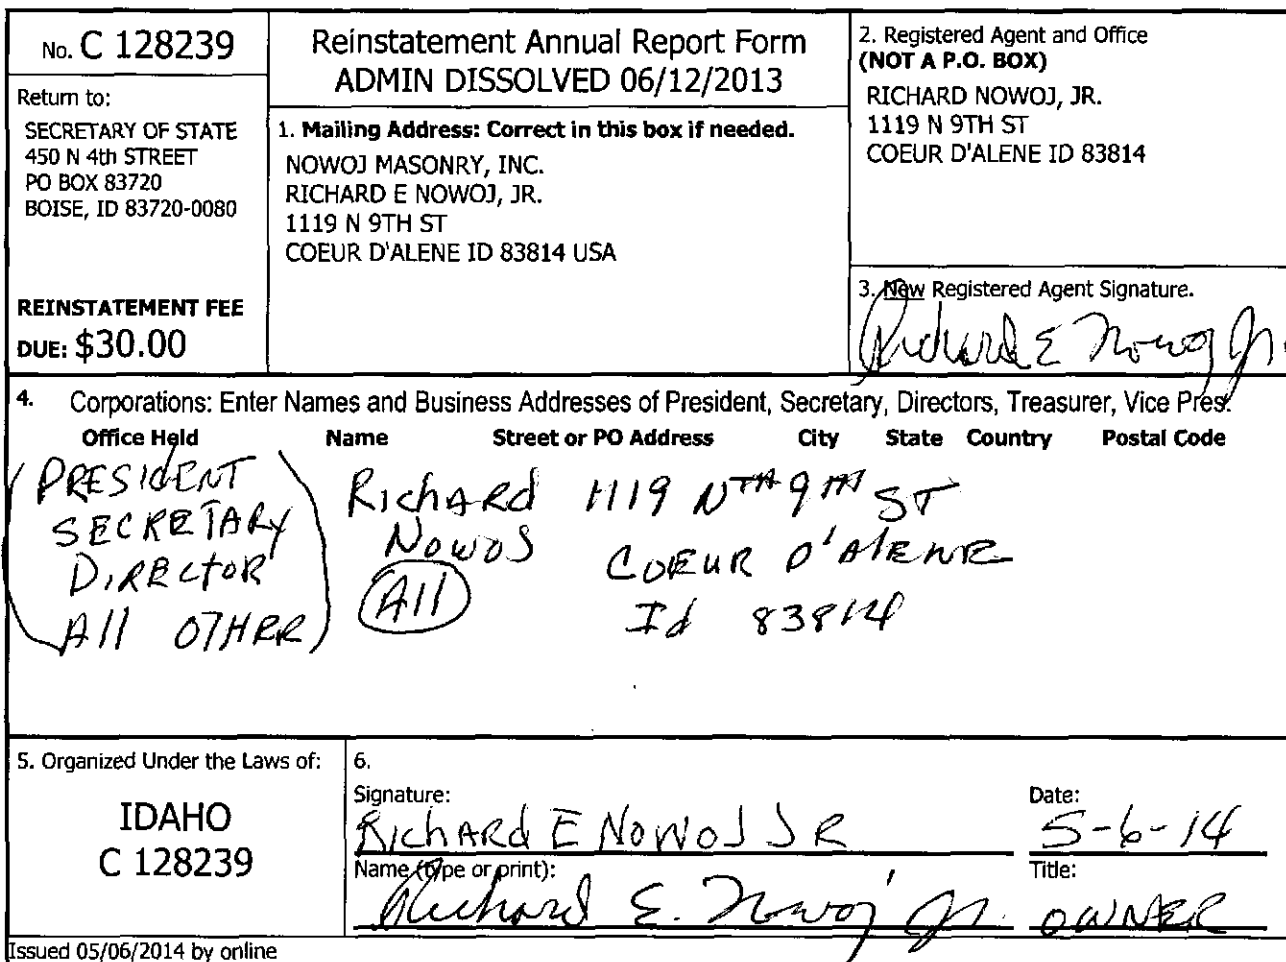 No. C 128239
Return to:
SECRETARY OF STATE
450 N 4th STREET
PO BOX 83720
BOISE, ID 83720-0080
REINSTATEMENT FEE
DUE: $30.00
Reinstatement Annual Report Form
ADMIN DISSOLVED 06/12/2013
1. Mailing Address: Correct in this box if needed.
NOWOJ MASONRY, INC.
RICHARD E NOWOJ, JR.
1119 N 9TH ST
COEUR D'ALENE ID 83814 USA
2. Registered Agent and Office
(NOT A P.O. BOX)
RICHARD NOWOJ, JR.
1119 N 9TH ST
COEUR D'ALENE ID 83814
3. New Registered Agent Signature.
Richard E Nowoj Jr.
4. Corporations: Enter Names and Business Addresses of President, Secretary, Directors, Treasurer, Vice Pres.
Office Held Name Street or PO Address City State Country Postal Code
PRESIdENT RichARd 1119 NTH 9TH ST
SECRETARY NOWOJ COEUR D'AlENE
DiRECtOR All Id 83814
All OTHER
5. Organized Under the Laws of:
IDAHO
C 128239
6.
Signature:
RichARd E NOWOJ JR
Date:
5-6-14
Name (type or print):
Richard E. Nowoj Jr.
Title:
OWNER
Issued 05/06/2014 by online